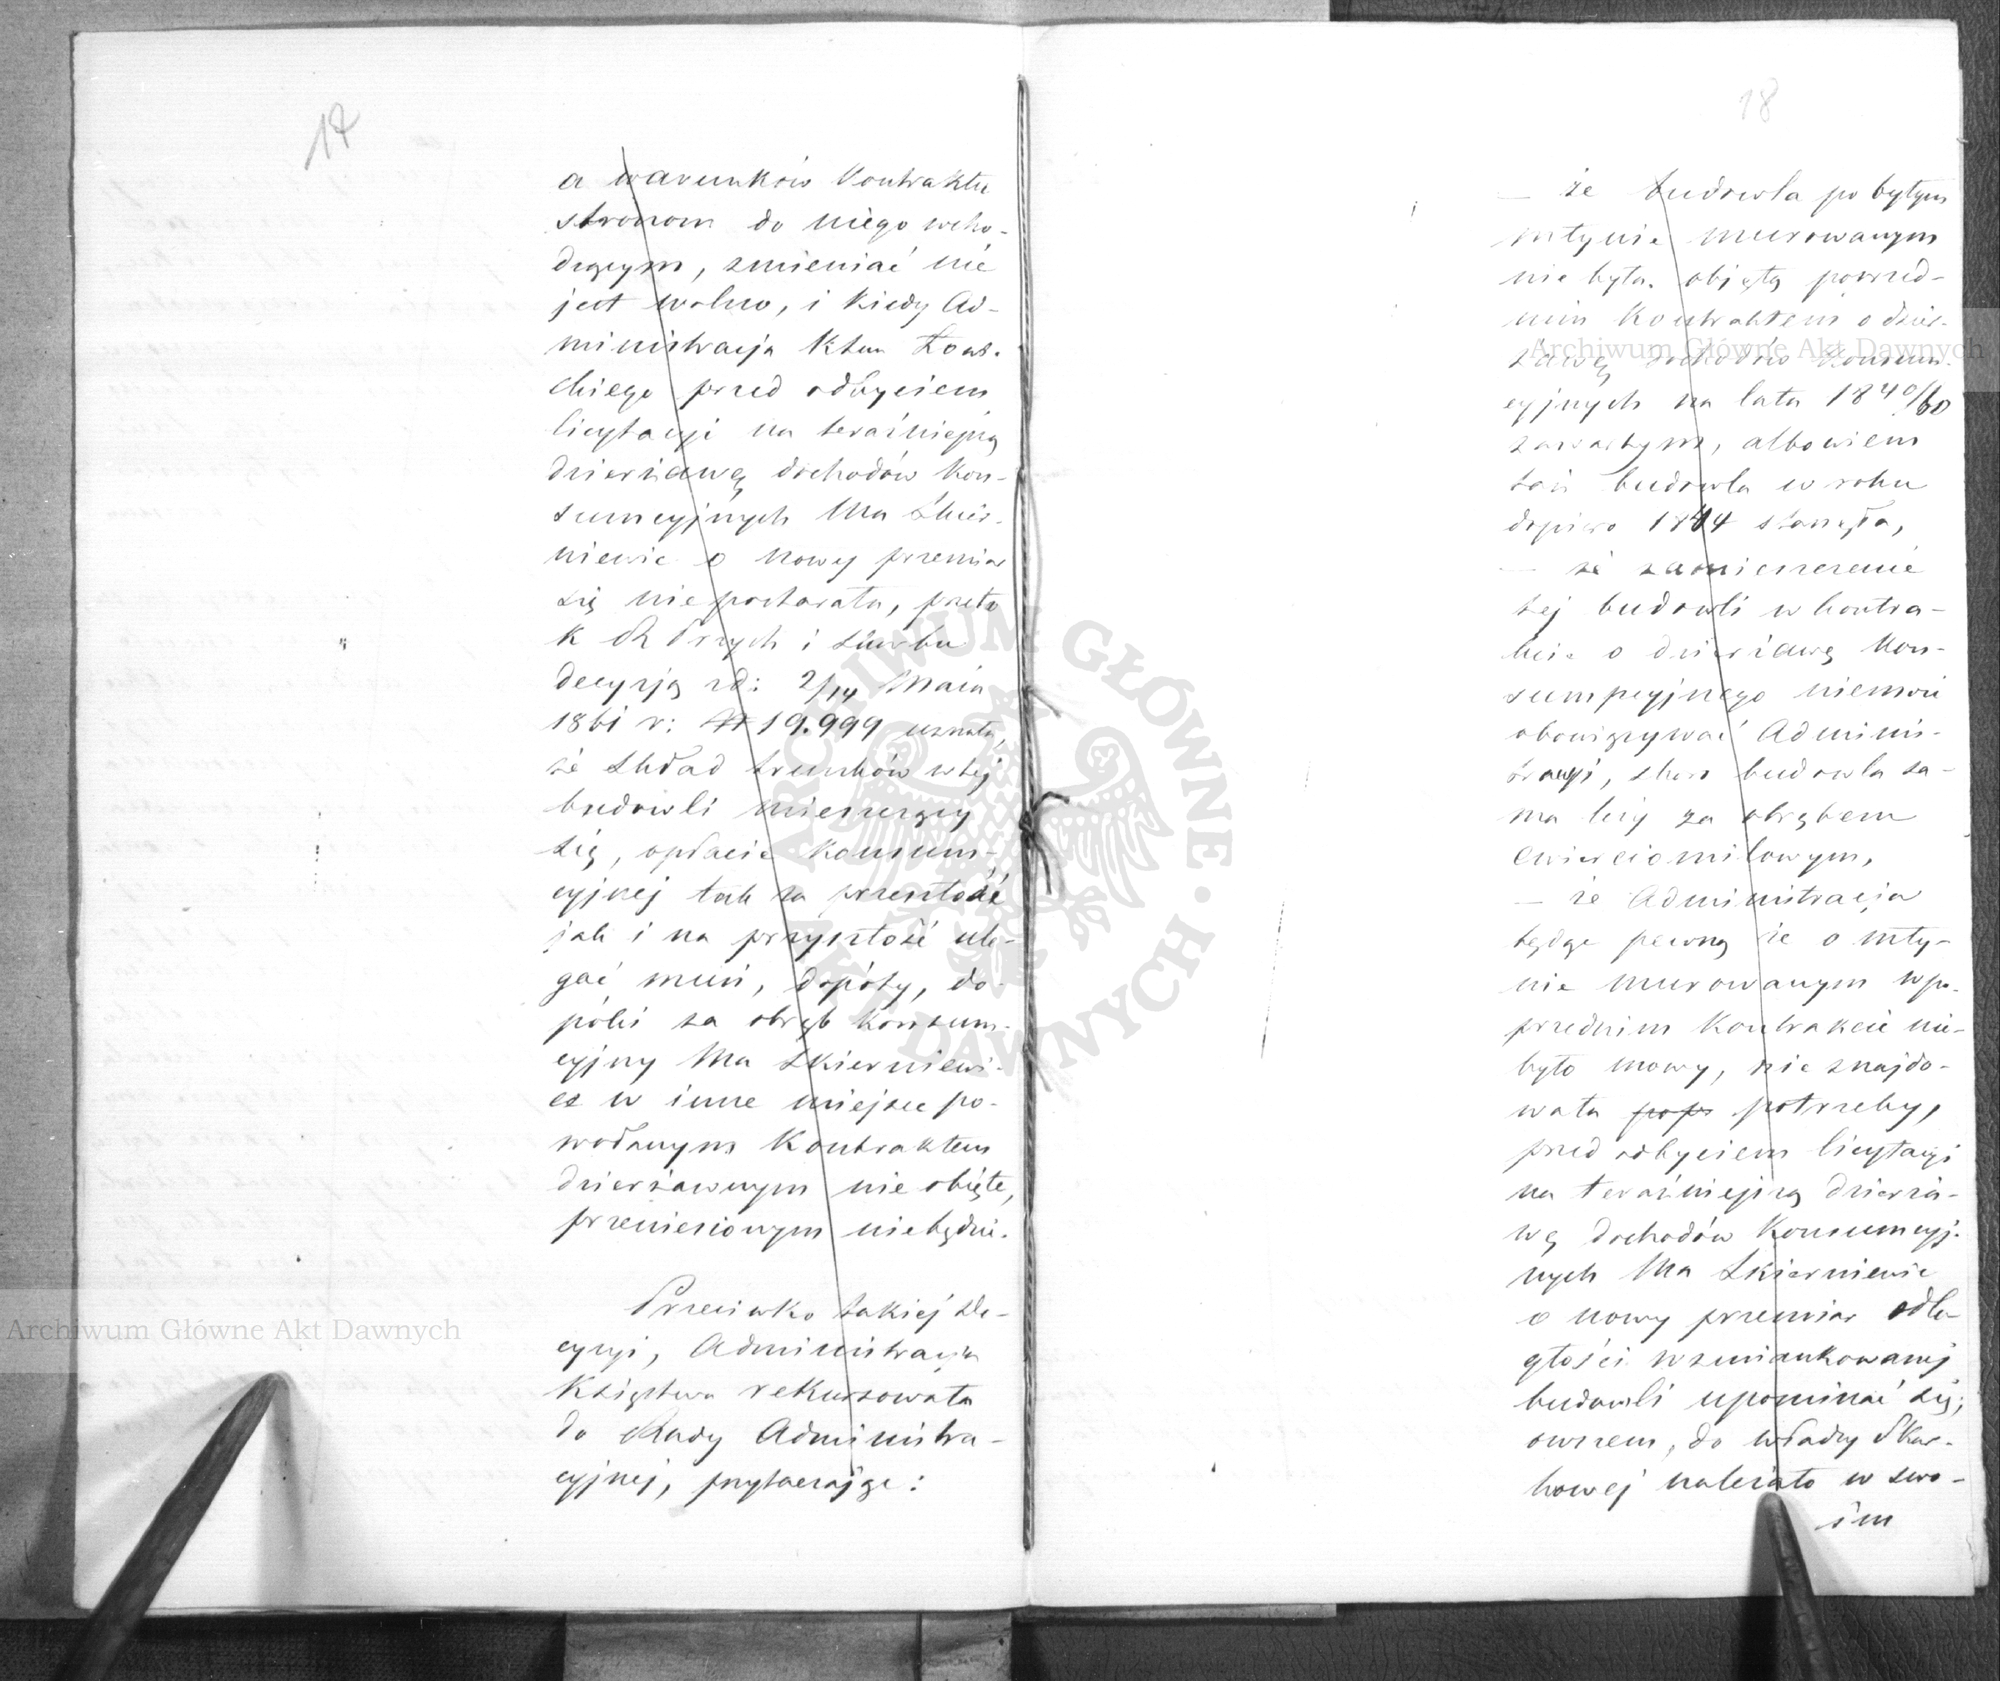 17
a warunków Kontraktu
stronom do niego wcho-
dzącym, zmieniać nie
jest wolno, i kiedy Ad-
ministracja Ktwa Łowi-
ckiego przed odbyciem
licytacyi na teraźniejszą
dzierżawę dochodów kon-
sumcyjnych Mta Skier-
niewic o nowy przemiar
się niepostarała, przeto
K R Przych i Skarbu
decyzją zd: 2/14 Maia
1861 r: N 19.999 uznała,
że skład trunków w tej
budowli mieszczący
się, opłacie konsum-
cyjnej tak za przeszłość
jak i na przyszłość ule-
gać musi, dopóty, do-
póki za obręb konsum-
cyjny Mta Skierniewi-
ez w inne miejsce po-
wołanym Kontraktem
dzierżawnym nie objęte,
przeniesionym niebędzie.
Przeciwko takiej de-
cyzyi, Administracja
Księstwa rekursowała
do Rady Administra-
cyjnej, przytaczając:
18
– że budowla po byłym
młynie murowanym
nie była objętą poprzed-
nim Kontraktem o dzier-
żawę dochodów Konsum-
cyjnych na lata 1840/60
zawartym, albowiem
taż budowla w roku
dopiero 1844 stanęła,
– że zamieszczenie
tej budowli w kontra-
kcie o dzierżawę kon-
sumpcyjnego niemoże
obowiązywać Adminis-
tracyi, skoro budowla sa-
ma leży za obrębem
ćwierciomilowym,
– że Administracja
będąc pewną że o mły-
nie murowanym w po-
przednim Kontrakcie nie-
było mowy, nie znajdo-
wała potrzeby,
przed odbyciem licytacyi
na teraźniejszą dzierża-
wę dochodów Konsumcyj-
nych Mta Skierniewic
o nowy przemiar odle-
głości wzmiankowanej
budowli upominać się;
owszem, do władzy Skar-
bowej należało w swo-
im
Archiwum Główne Akt Dawnych
Archiwum Główne Akt Dawnych
ARCHIWUM GŁÓWNE AKT DAWNYCH